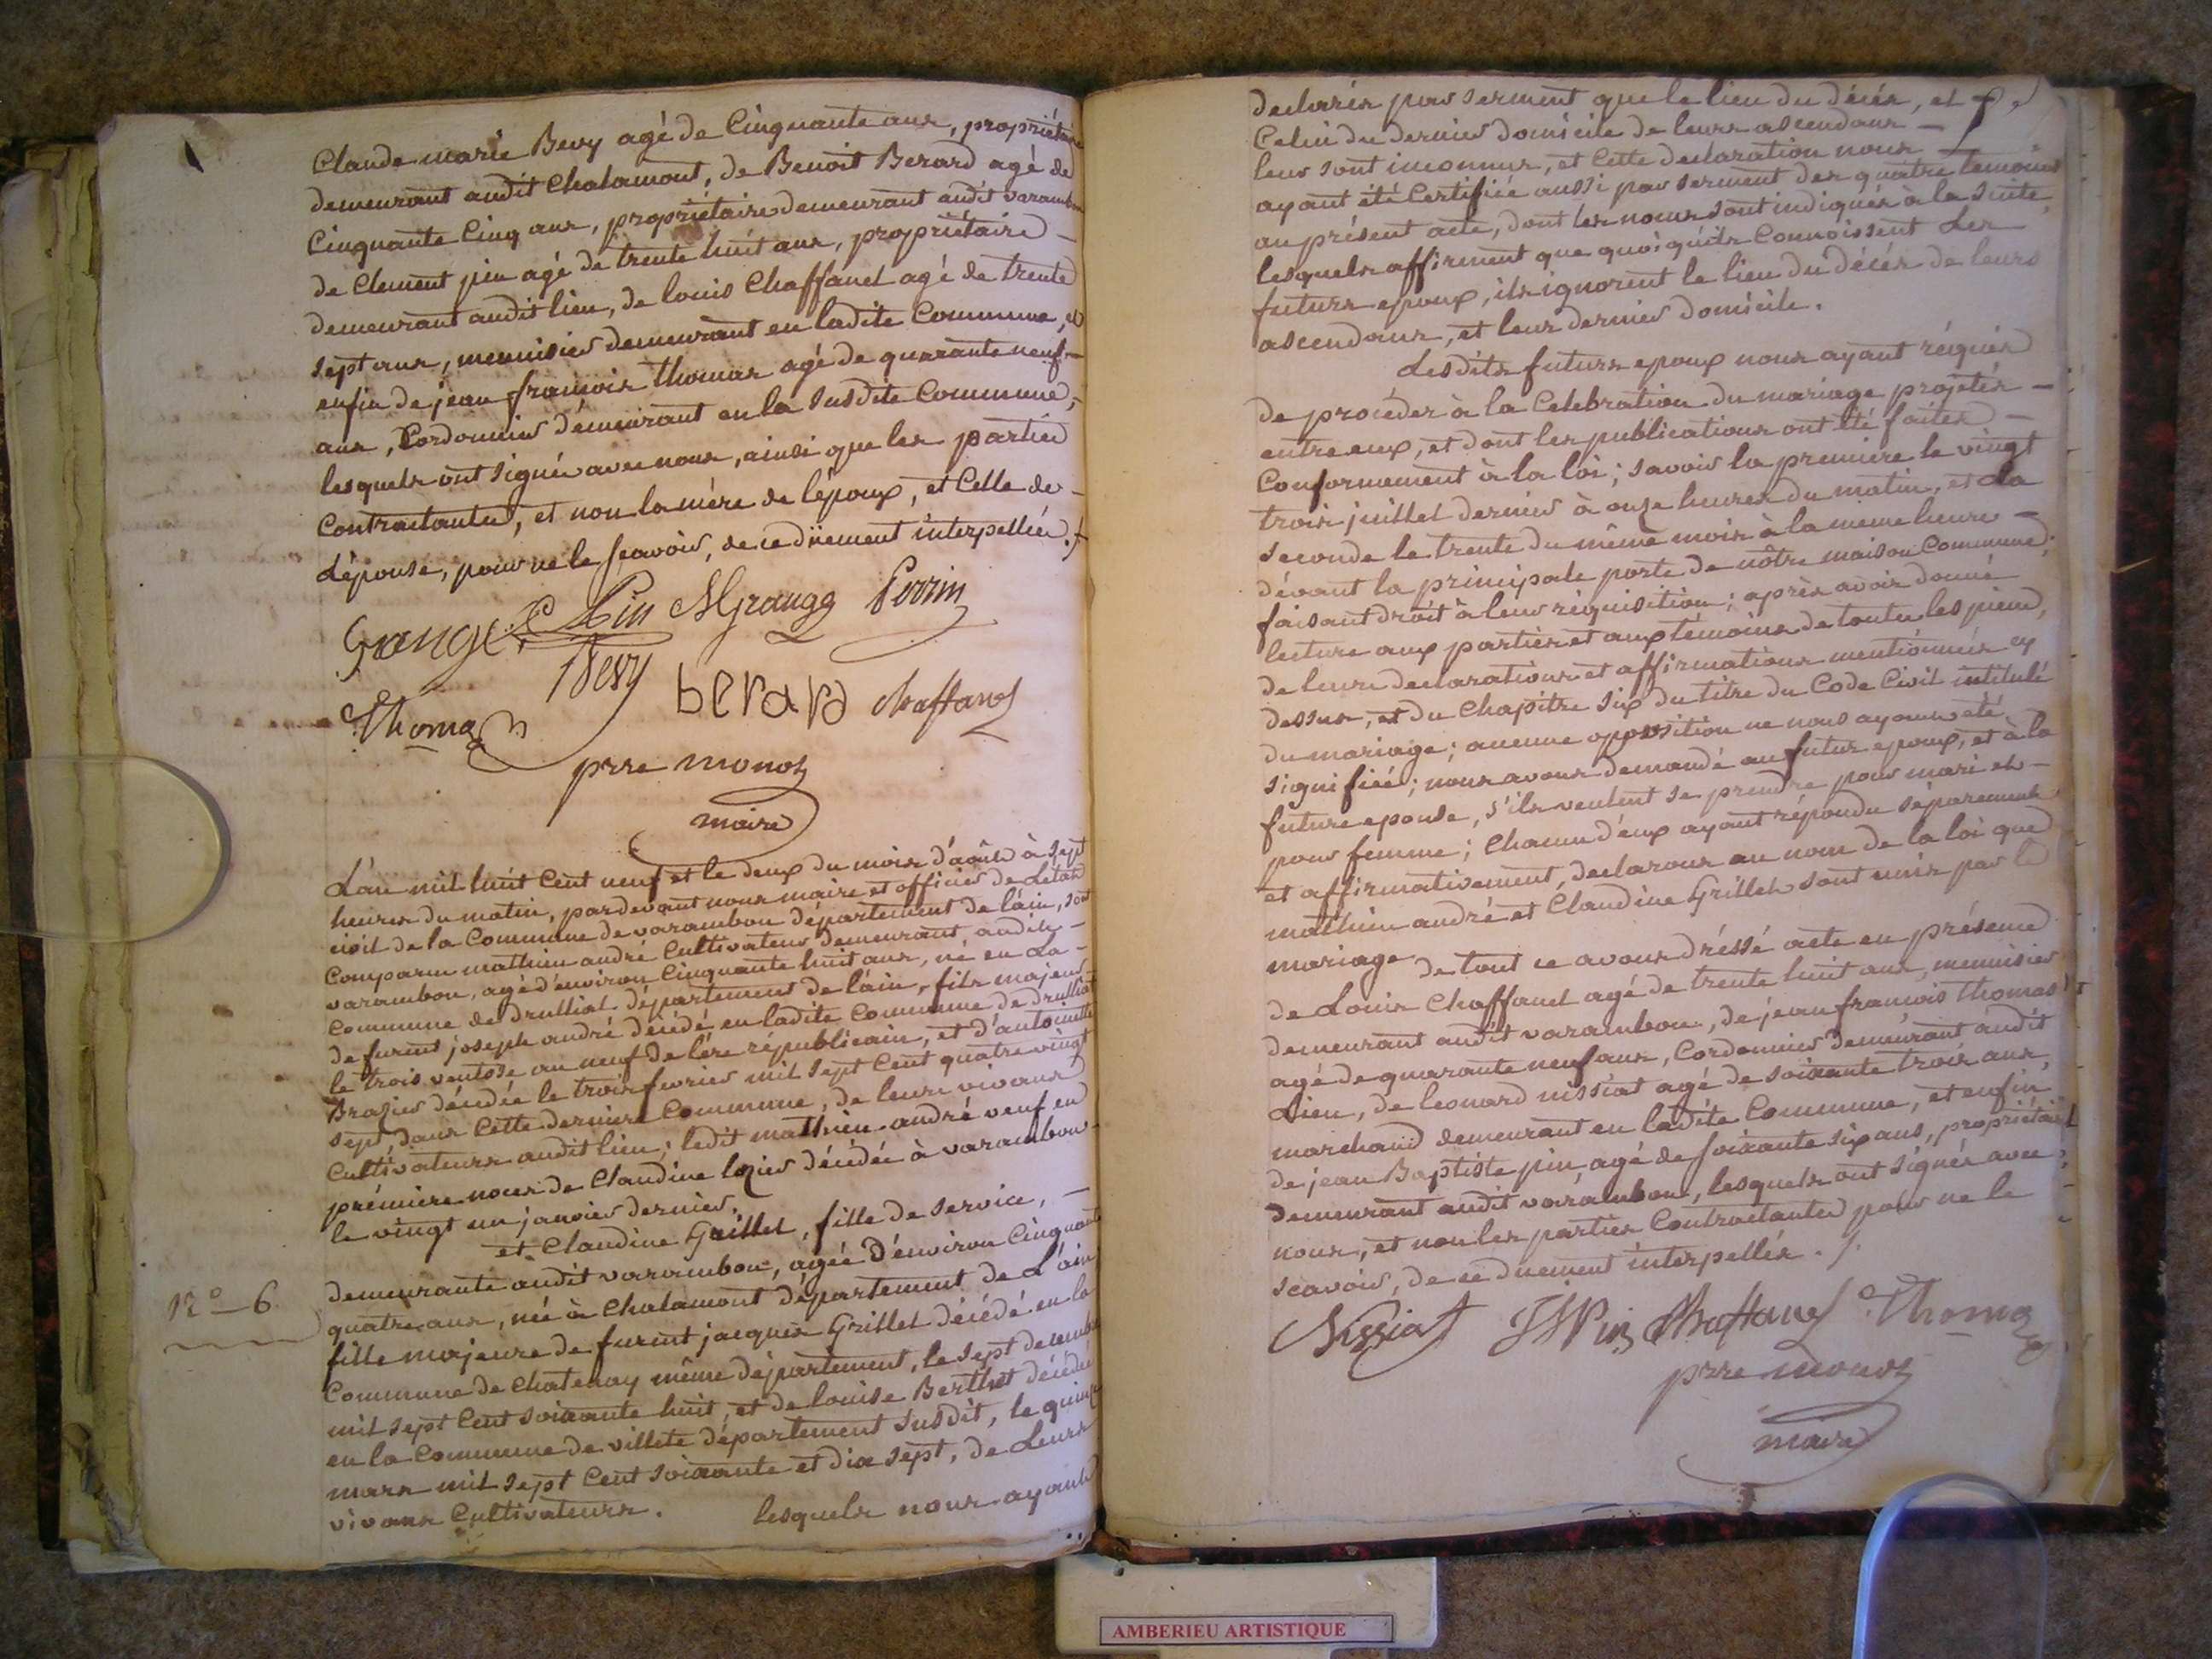 Claude marie Bevy agé de Cinquante ans, propriétaire
demeurant audit Chalamont, de Benoit Berard agé de
Cinquante Cinq ans, propriétaire demeurant audit varambon
de Clement pin agé de trente huit ans, propriétaire
demeurant audit lieu, de louis Chaffanel agé de trente
sept ans, menuisier demeurant en ladite Commune, et
enfin de jean françois thomas agé de quarante neuf
ans, Cordonnier demeurant en la susdite Commune,
lesquels ont signé avec nous, ainsi que les parties
Contractantes, et non la mère de l'époux, et Celle de
L'épouse, pour ne le sçavoir, de ce düement interpellée ./.
Grange C Pin Mgrange Perrin
Bevy berard Chaffanel
Thomas
prre monoz
maire
L'an mil huit Cent neuf et le deux du mois d'août à sept
heures du matin, pardevant nous maire et officier de L'état
civil de la Commune de varambon département de l'ain, sont
Comparu mathieu andré Cultivateur demeurant audit
varambon, agé d'environ Cinquante huit ans, né en La
Commune de druillat département de l'ain, fils majeur
de furent joseph andré décédé en ladite Commune de druillat
le trois ventose an neuf de l'ére républicain, et d'antoinette
Brazier décédée le trois fevrier mil sept Cent quatre vingt
sept, dans Cette derniere Commune, de leurs vivans
Cultivateurs audit lieu; ledit mathieu andré veuf en
prémiere noces de Claudine lozier décédée à varambon
le vingt un janvier dernier.
et Claudine Grillet, fille de service,
demeurante audit varambon, agée d'environ Cinquante
N° 6.
quatre ans, née à Chalamont département de L'ain
fille majeure de furent jacques Grillet décédé en la
Commune de Chatenay même département, le sept decembre
mil sept Cent soixante huit, et de louise Berthet décédée
en la Commune de villete département susdit, le quinze
mars mil sept Cent soixante et dix sept, de Leurs
vivans Cultivateurs. lesquels nous ayant
declarés par serment que le lieu du décés, et
Celui du dernier domicile de leurs ascendans
leur sont inconnus, et Cette declaration nous
ayant été Certifiée aussi par serment des quatre temoins
au présent acte, dont les noms sont indiqués à la suite,
lesquels affirment que quoi qu'ils Connoissent Les
futurs epoux, ils ignorent le lieu du décés de leurs
ascendans, et leur dernier domicile.
Lesdits futurs epoux nous ayant réquis
de procéder à la Celebration du mariage projetés
entre eux, et dont les publications ont été faites
Conformement à la loi; savoir la premiere le vingt
trois juillet dernier à onze heures du matin, et La
seconde le trente du même mois à la meme heure
dévant la principale porte de nôtre maison Commune;
faisant droit à leur réquisition; après avoir donné
lecture aux parties et aux témoins de toutes les pieces,
de leurs declarations et affirmations mentionnés cy
dessus, et du Chapitre six du titre du Code Civil intitulé
du mariage; aucune opposition ne nous ayant été
signifiée; nous avons demandé au futur epoux, et à la
future epouse, s'ils veulent se prendre pour mari et
pour femme; Chacun d'eux ayant répondu séparement
et affirmativement, declarons au nom de la loi que
mathieu andré et Claudine Grillet sont unis par le
mariage
de tout ce avons dréssé acte en présence
de Louis Chaffanel agé de trente huit ans, menuisier
demeurant audit varambon, de jean françois thomas
agé de quarante neuf ans, Cordonnier demeurant audit
Lieu, de leonard nissiat agé de soixante trois ans,
marchand demeurant en ladite Commune, et enfin
de jean Baptiste pin agé de soixante six ans, propriétaire
demeurant audit varambon, lesquels ont signés avec
nous, et non les parties Contractantes pour ne le
scavoir, de ce duement interpellés ./.
Nissiat JB Pin Chaffanel Thomas
prre monoz
maire
AMBERIEU ARTISTIQUE